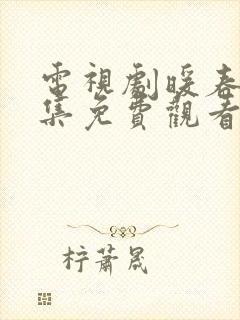 電視劇暖春
集免費觀看
柠蕭晟